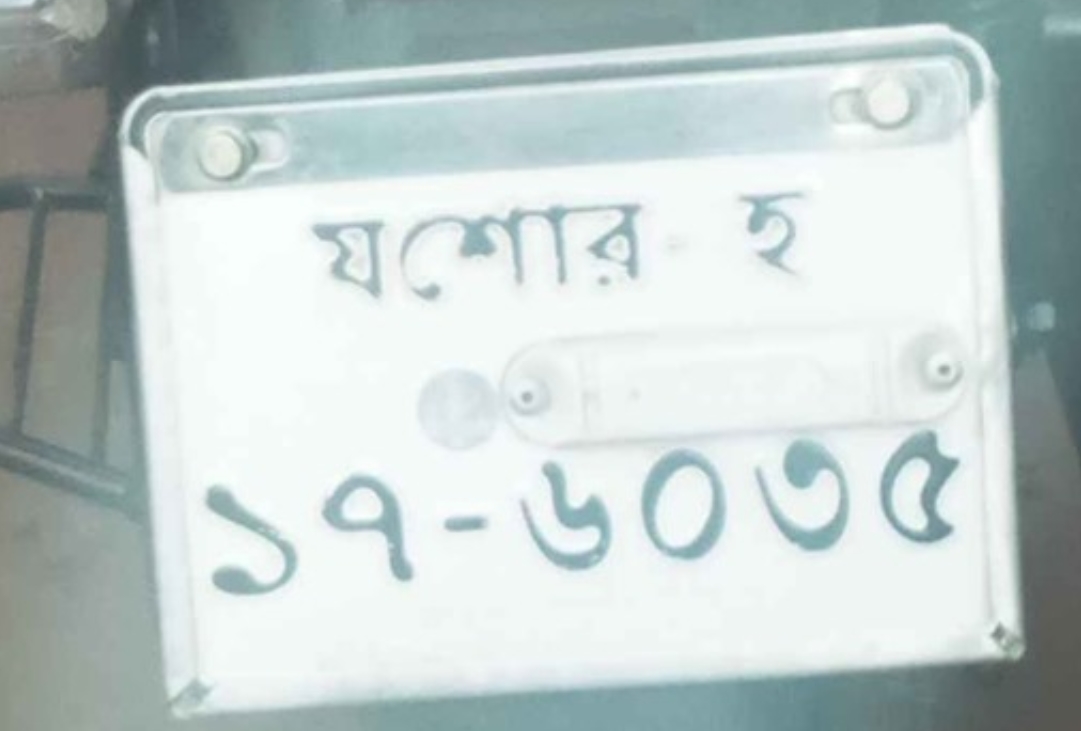 যশোর-হ
১৭-৬০৩৫